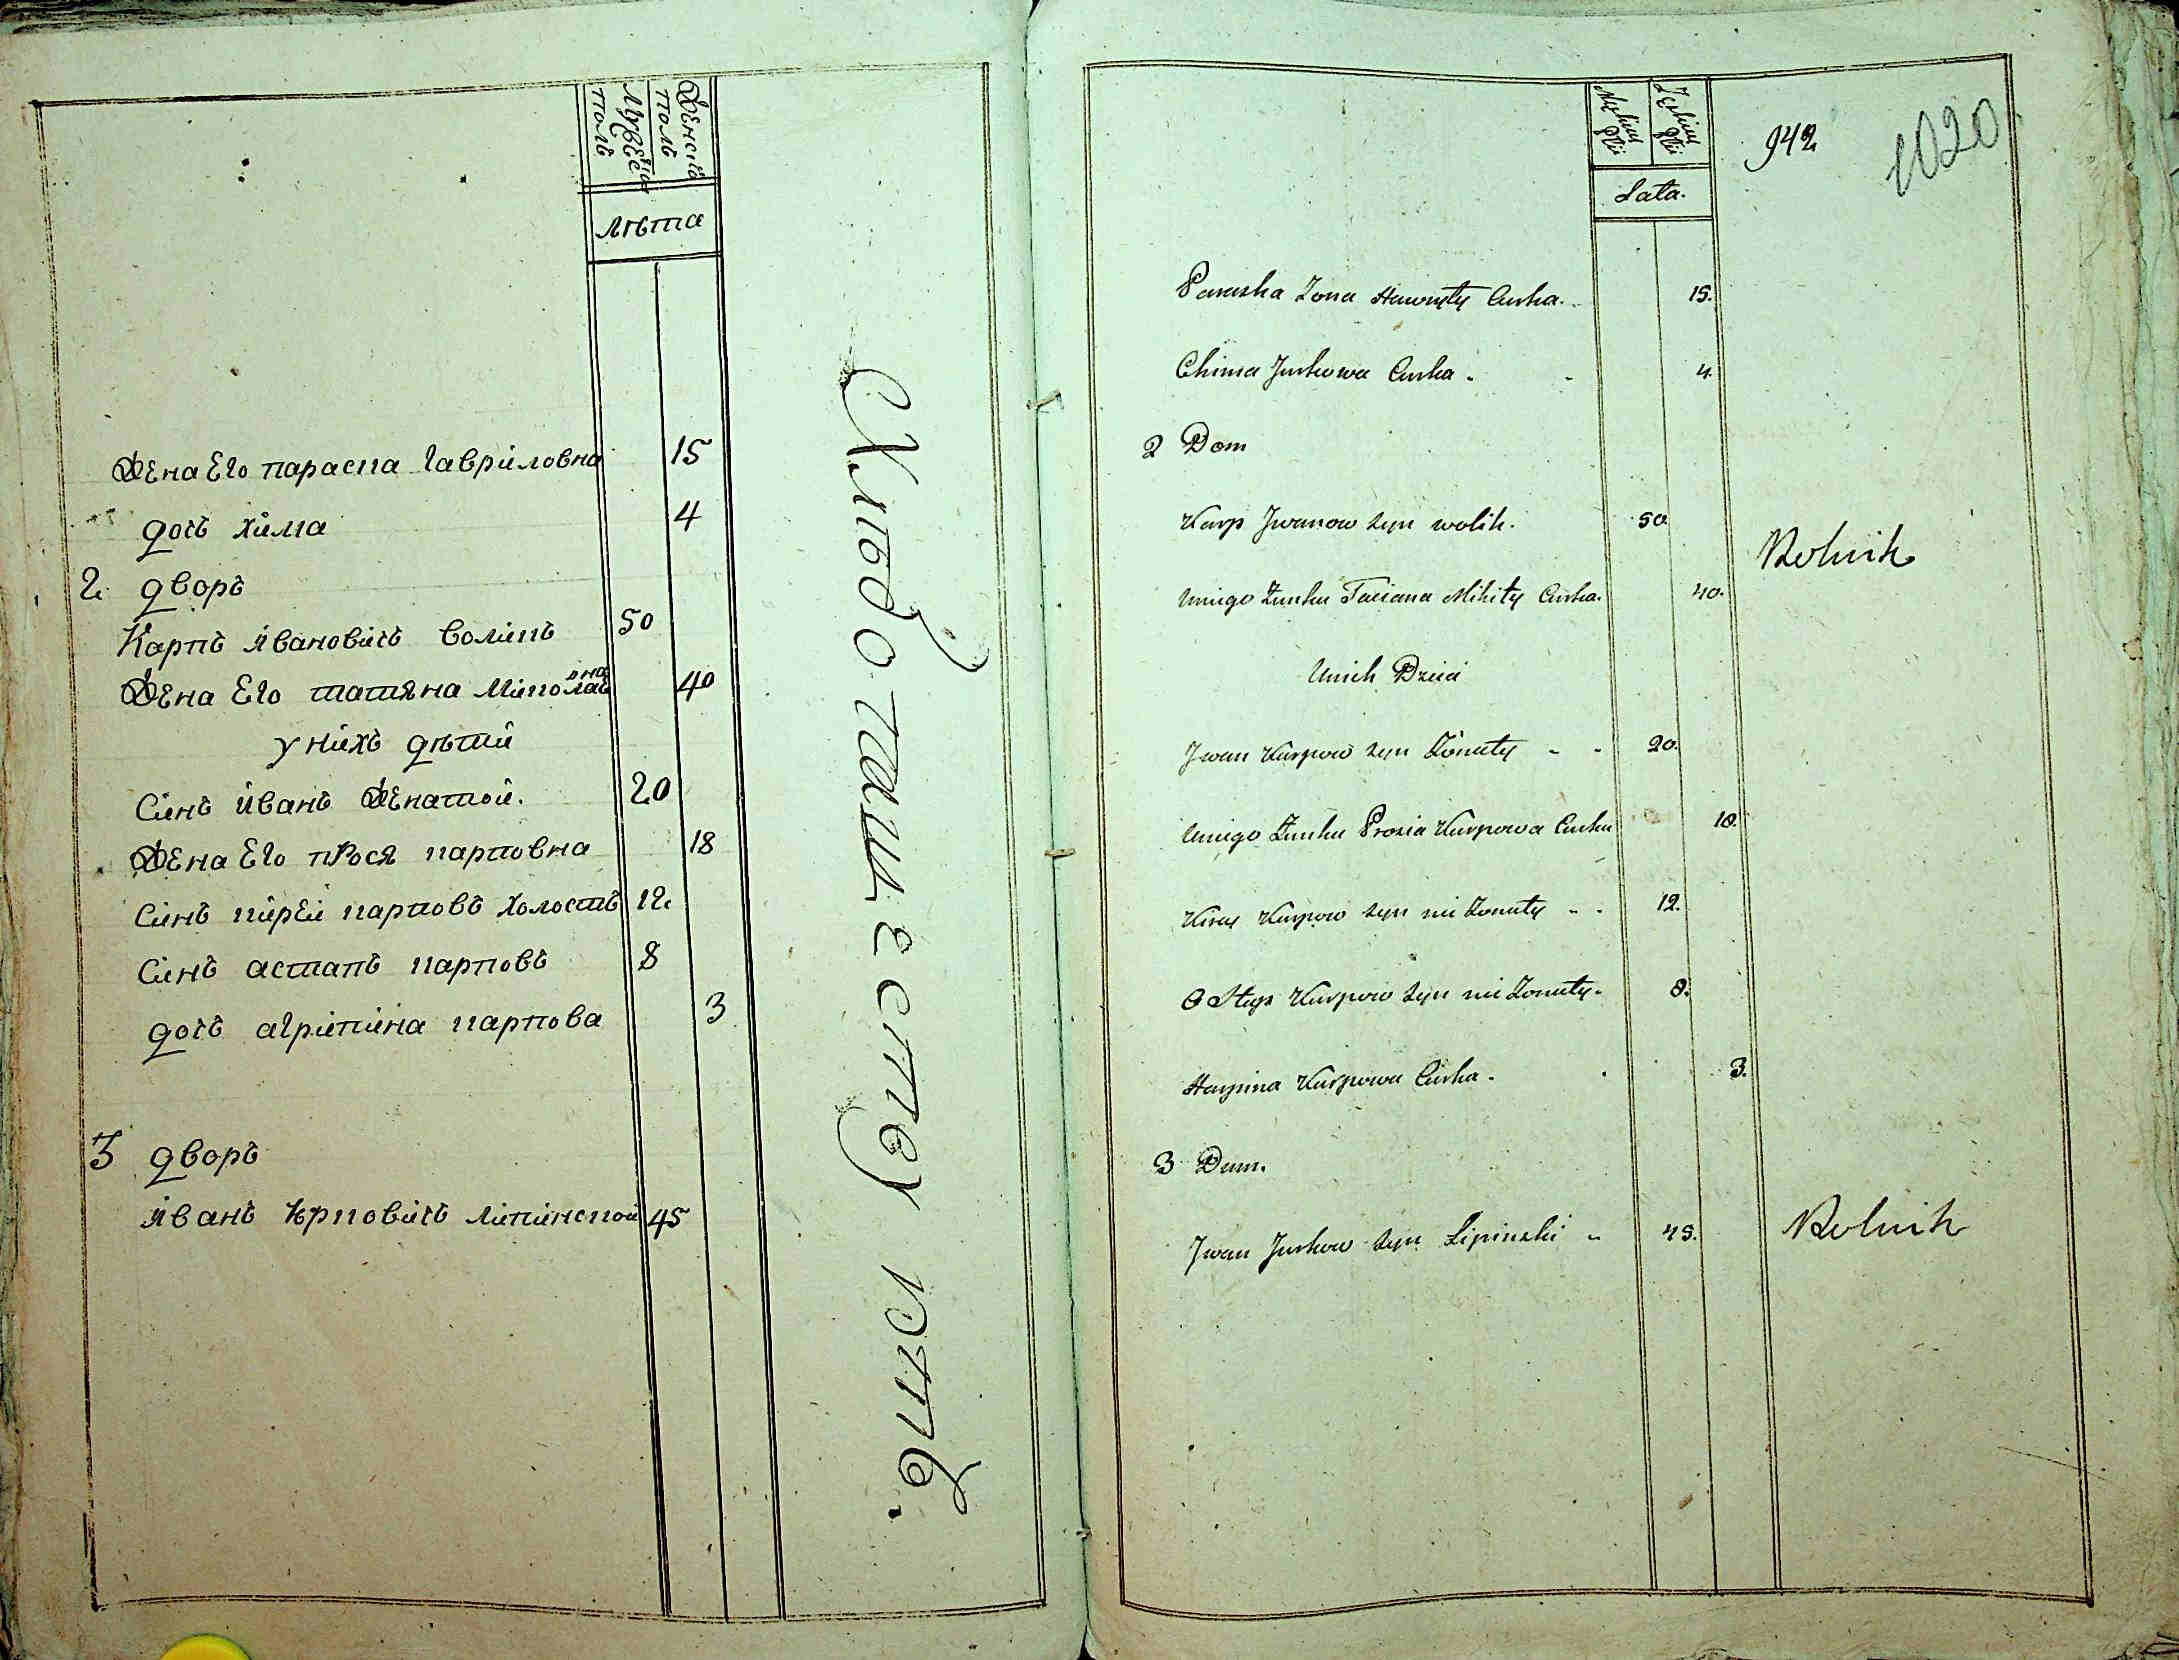 Женскій полъ
Мужеска полъ
лѣта
Жена Его параска Гавриловна 15
дочь хима 4
2 дворъ
Карпъ ивановичъ воликъ 50
Жена Его татяна Микола вна 40
у нихъ дѣти
синъ иванъ Женатой. 20
Жена Его прося карповна 18
синъ кирей карповъ холостъ 12
синъ астапъ карповъ 8
дочь агрипина карпова 3
3 дворъ
иванъ юрковичъ липинской 45
Хлѣбопашествуютъ.
Męskiej Płci
Żeńskiej Płci
942
1020
Lata.
Paraska Żona Hawryły Curka. 15.
Chima Jurkowa Curka 4
2 Dom
Karp Jwanow syn wolik. 50
Uniego Zonka Taciana Mikity Curka. 40.
Rolnik
Unich Dzieci
Jwan Karpow syn Żonaty 20.
Uniego Zonka Prosia Karpowa Curka 18.
Kirey Karpow syn nie Żonaty 12.
Ostap Karpow syn nie Żonaty. 8.
Harpina Karpowa Curka. 3.
3 Dum.
Jwan Jurkow syn Lipinski 45.
Rolnik